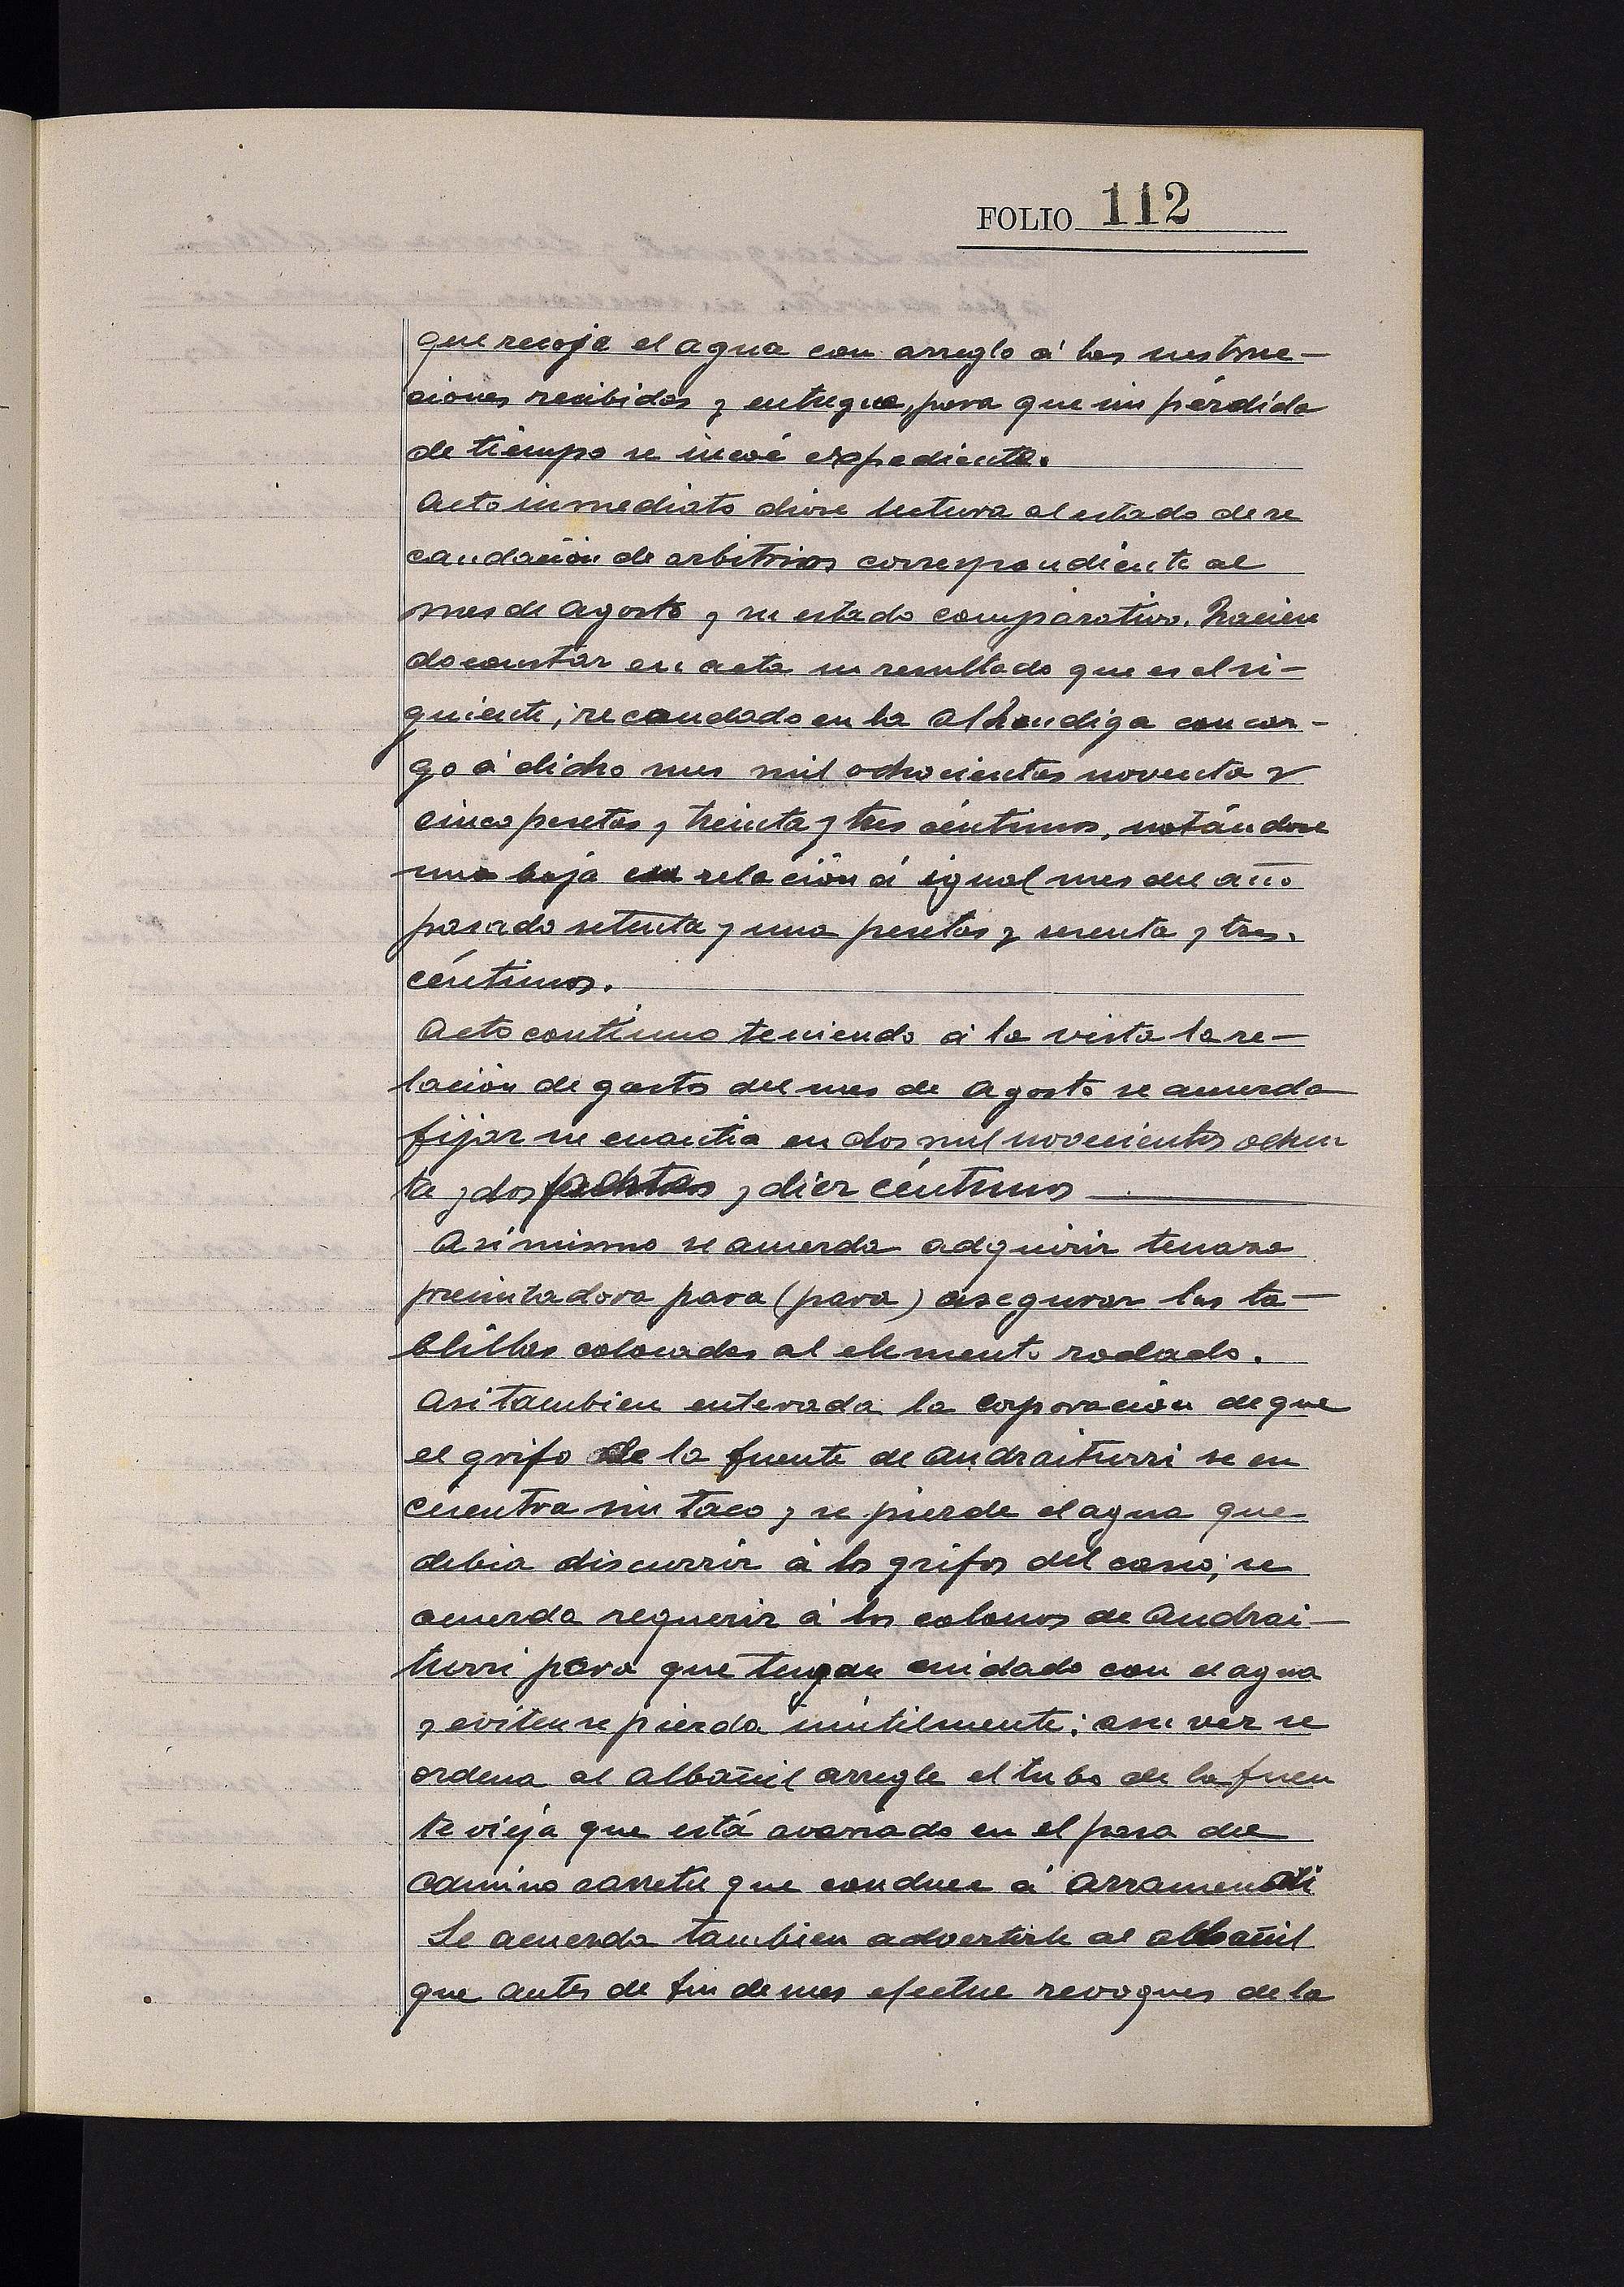 FOLIO 112
que recoja el agua con arreglo á las instruc-
ciones recibidas y entregue, para que sin pérdida
de tiempo se incoé expediente.
Acto inmediato dióse lectura al estado de re
caudación de arbitrios correspondiente al
mes de Agosto y su estado comparativo. hacien
do constar en acta su resultado que es el si-
guiente; recaudado en la Alhondiga con car-
go á dicho mes mil ochocientas noventa y
cinco pesetas y treinta y tres céntimos, notándose
una baja en relación á igual mes del año
pasado setenta y una pesetas y sesenta y tres.
céntimos.
Acto continuo teniendo á la vista la re-
lación de gastos del mes de Agosto se acuerda
fijar su cuantia en dos mil novecientos ochen
ta y dos pesetas y diez céntimos
Asi mismo se acuerda adquirir tenaza
precintadora para (para) asegurar las ta-
blillas colocadas al elemento rodado.
Asi tambien enterada la corporación de que
el grifo de la fuente de Andraiturri se en
cuentra sin taco y se pierde el agua que
debia discurrir á los grifos del casco; se
acuerda requerir á los colonos de Andrai-
turri para que tengan cuidado con el agua
y eviten se pierda inútilmente: a su vez se
ordena al Albañil arregle el tubo de la fuen
te vieja que está avariado en el paso del
camino carretil que conduce á Arramendi
Se acuerda tambien advertirle al albañil
que antes de fin de mes efectue revoques de la